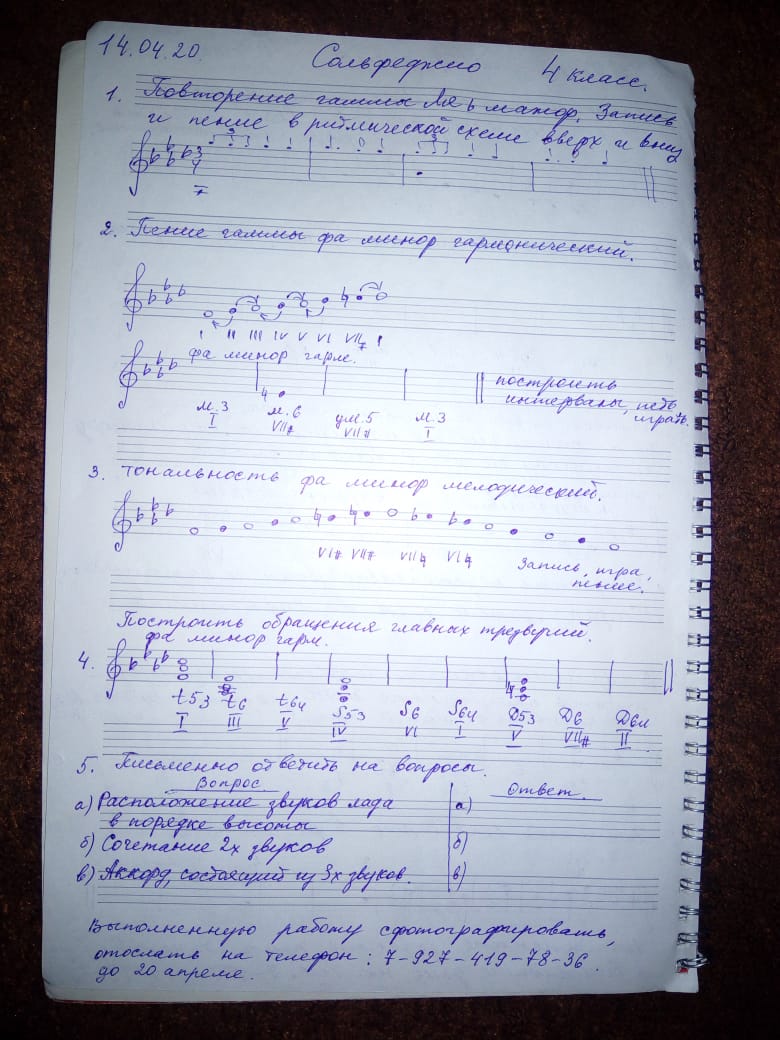 14.04.20. Сольфеджио 4 класс.
1. Повторение гаммы Ля ♭ мажор. Запись
и пение в ритмической схеме вверх и вниз
3
4
2. Пение гаммы фа минор гармонический.
I II III IV V VI VII# I
фа минор гарм.
построить
интервалы, петь
играть.
м.3 м.6 ум.5 м.3
I VII# VII# I
3. Тональность фа минор мелодический.
VI# VII# VII♮ VI♮ Запись, игра,
пение.
Построить обращения главных трезвучий.
фа минор гарм.
4.
t53 t6 t64 S53 S6 S64 D53 D6 D64
I III V IV VI I V VII# II
5. Письменно ответить на вопросы.
Вопрос Ответ.
а) Расположение звуков лада а)
в порядке высоты
б) Сочетание 2х звуков б)
в) Аккорд, состоящий из 3х звуков. в)
Выполненную работу сфотографировать,
отослать на телефон: 7-927-419-78-36.
до 20 апреля.